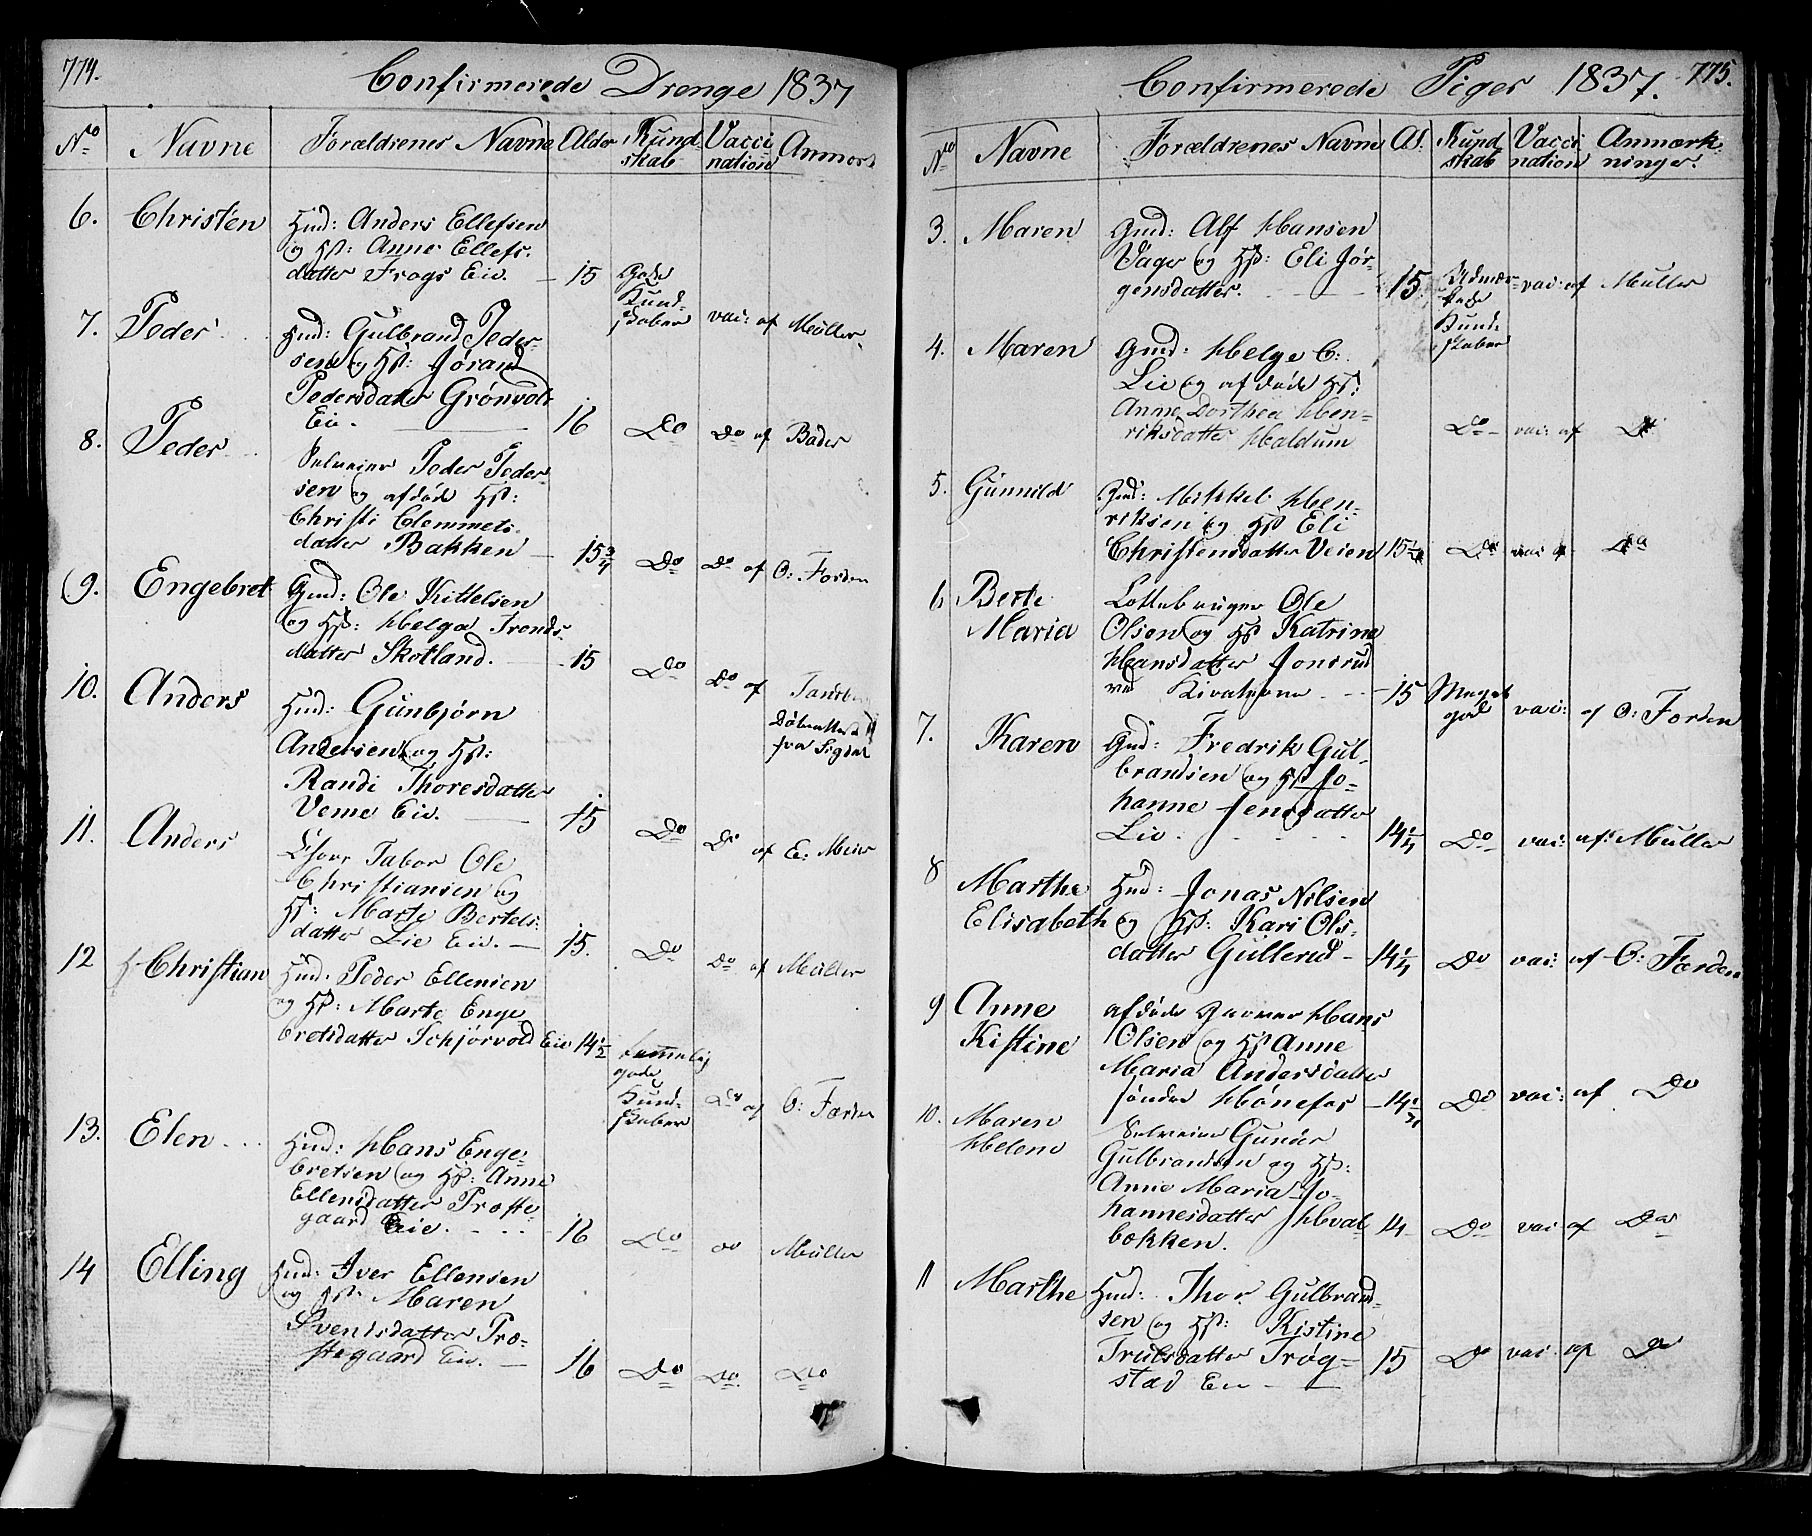 774.
Confirmerede Drenge 1837
No Navne Forældrenes Navne Alder Kund- Vacci Anmerk
skab nation
6. Christen Hmd: Anders Ellefsen
og Hst: Anne Ellefs.
datter Frogs Eie. — 15 Gode
Kund-
skaber vac: af Müller
7. Peder Hmd: Gulbrand Peder-
sen og Hst: Jørand
Pedersdatter Grönvold
Eie. 16 Do Do af Bader
8. Peder Selveier Peder Peder-
sen og afdøde Hst:
Christi Clemmets-
datter Bakken — 15 3/4 Do Do af O: Forden
9. Engebret Gmd: Ole Kittelsen
og Hst: Helga Tronds-
datter Skotland. — 15 Do Do af
10. Anders Hmd: Gunbjørn
Andersen og Hst:
Randi Thoresdatter
Veme Eie. — 15 Do Do af E: Meier
Døbeattest
fra Sigdal
11. Anders Ole
Christiansen og
Hst: Marte Bertels-
datter Lie Eie. — 15. Do Do af Müller
12 Christian Hmd: Peder Ellensen
og Hst: Marte Enge
bretsdatter Schjørvold Eie 14 1/2 temmelig
gode
Kund-
skaber Do af O: Forden
13. Elen Hmd: Hans Enge-
bretsen og Hst: Anne
Ellensdatter Proste-
gaard Eie. 16 Do Do Müller
14 Elling Hmd: Iver Ellensen
og Hst: Maren
Svendsdatter Pro-
stegaard Eie. — 16 Do Do. Do
775.
Confirmerede Piger 1837.
No Navne Forældrenes Navne Al. Kund Vacci Anmærk-
skab nation ninger.
3. Maren Gmd: Alf Hansen
Vager og Hst: Eli Jør-
gensdatter. — 15 Udmær-
kede
Kund-
skaber vac: af Müller
4. Maren Gmd: Helge C:
Lie og afdøde Hst:
Anne Dorthea Hen-
riksdatter Haldum Do vac: af Do
5. Gunnild Gmd: Mikkel Hen-
riksen og Hst Eli
Christensdatter Veien 15 1/2 Do vac af Do
6 Berte
Maria Ole
Olsen og Hst Katrine
Hansdatter Jonsrud
ved — 15 Meget
god vac: af O: Forden
7. Karen Gmd: Fredrik Gul-
brandsen og Hst Jo-
hanne Jensdatter
Lie. 14 1/4 Do vac: af: Müller
8 Marthe
Elisabeth Hmd: Jonas Nilsen
og Hst: Kari Ols-
datter Gullerud — 14 1/4 Do vac: af O: Forden
9 Anne
Kistine afdøde Garver Hans
Olsen og Hst Anne
Maria Andersdatter
søndre Hönefos — 14 Do vac: af Do
10. Maren
Helene Selveier Gunder
Gulbrandsen og Hst:
Anne Maria Jo-
hannesdatter Hval-
bækken. 14 Do vac af Do
11 Marthe Hmd: Thor Gulbrand-
sen og Hst: Kistine
Trulsdatter Trøg-
stad Eie — 15 Do vac: af Do